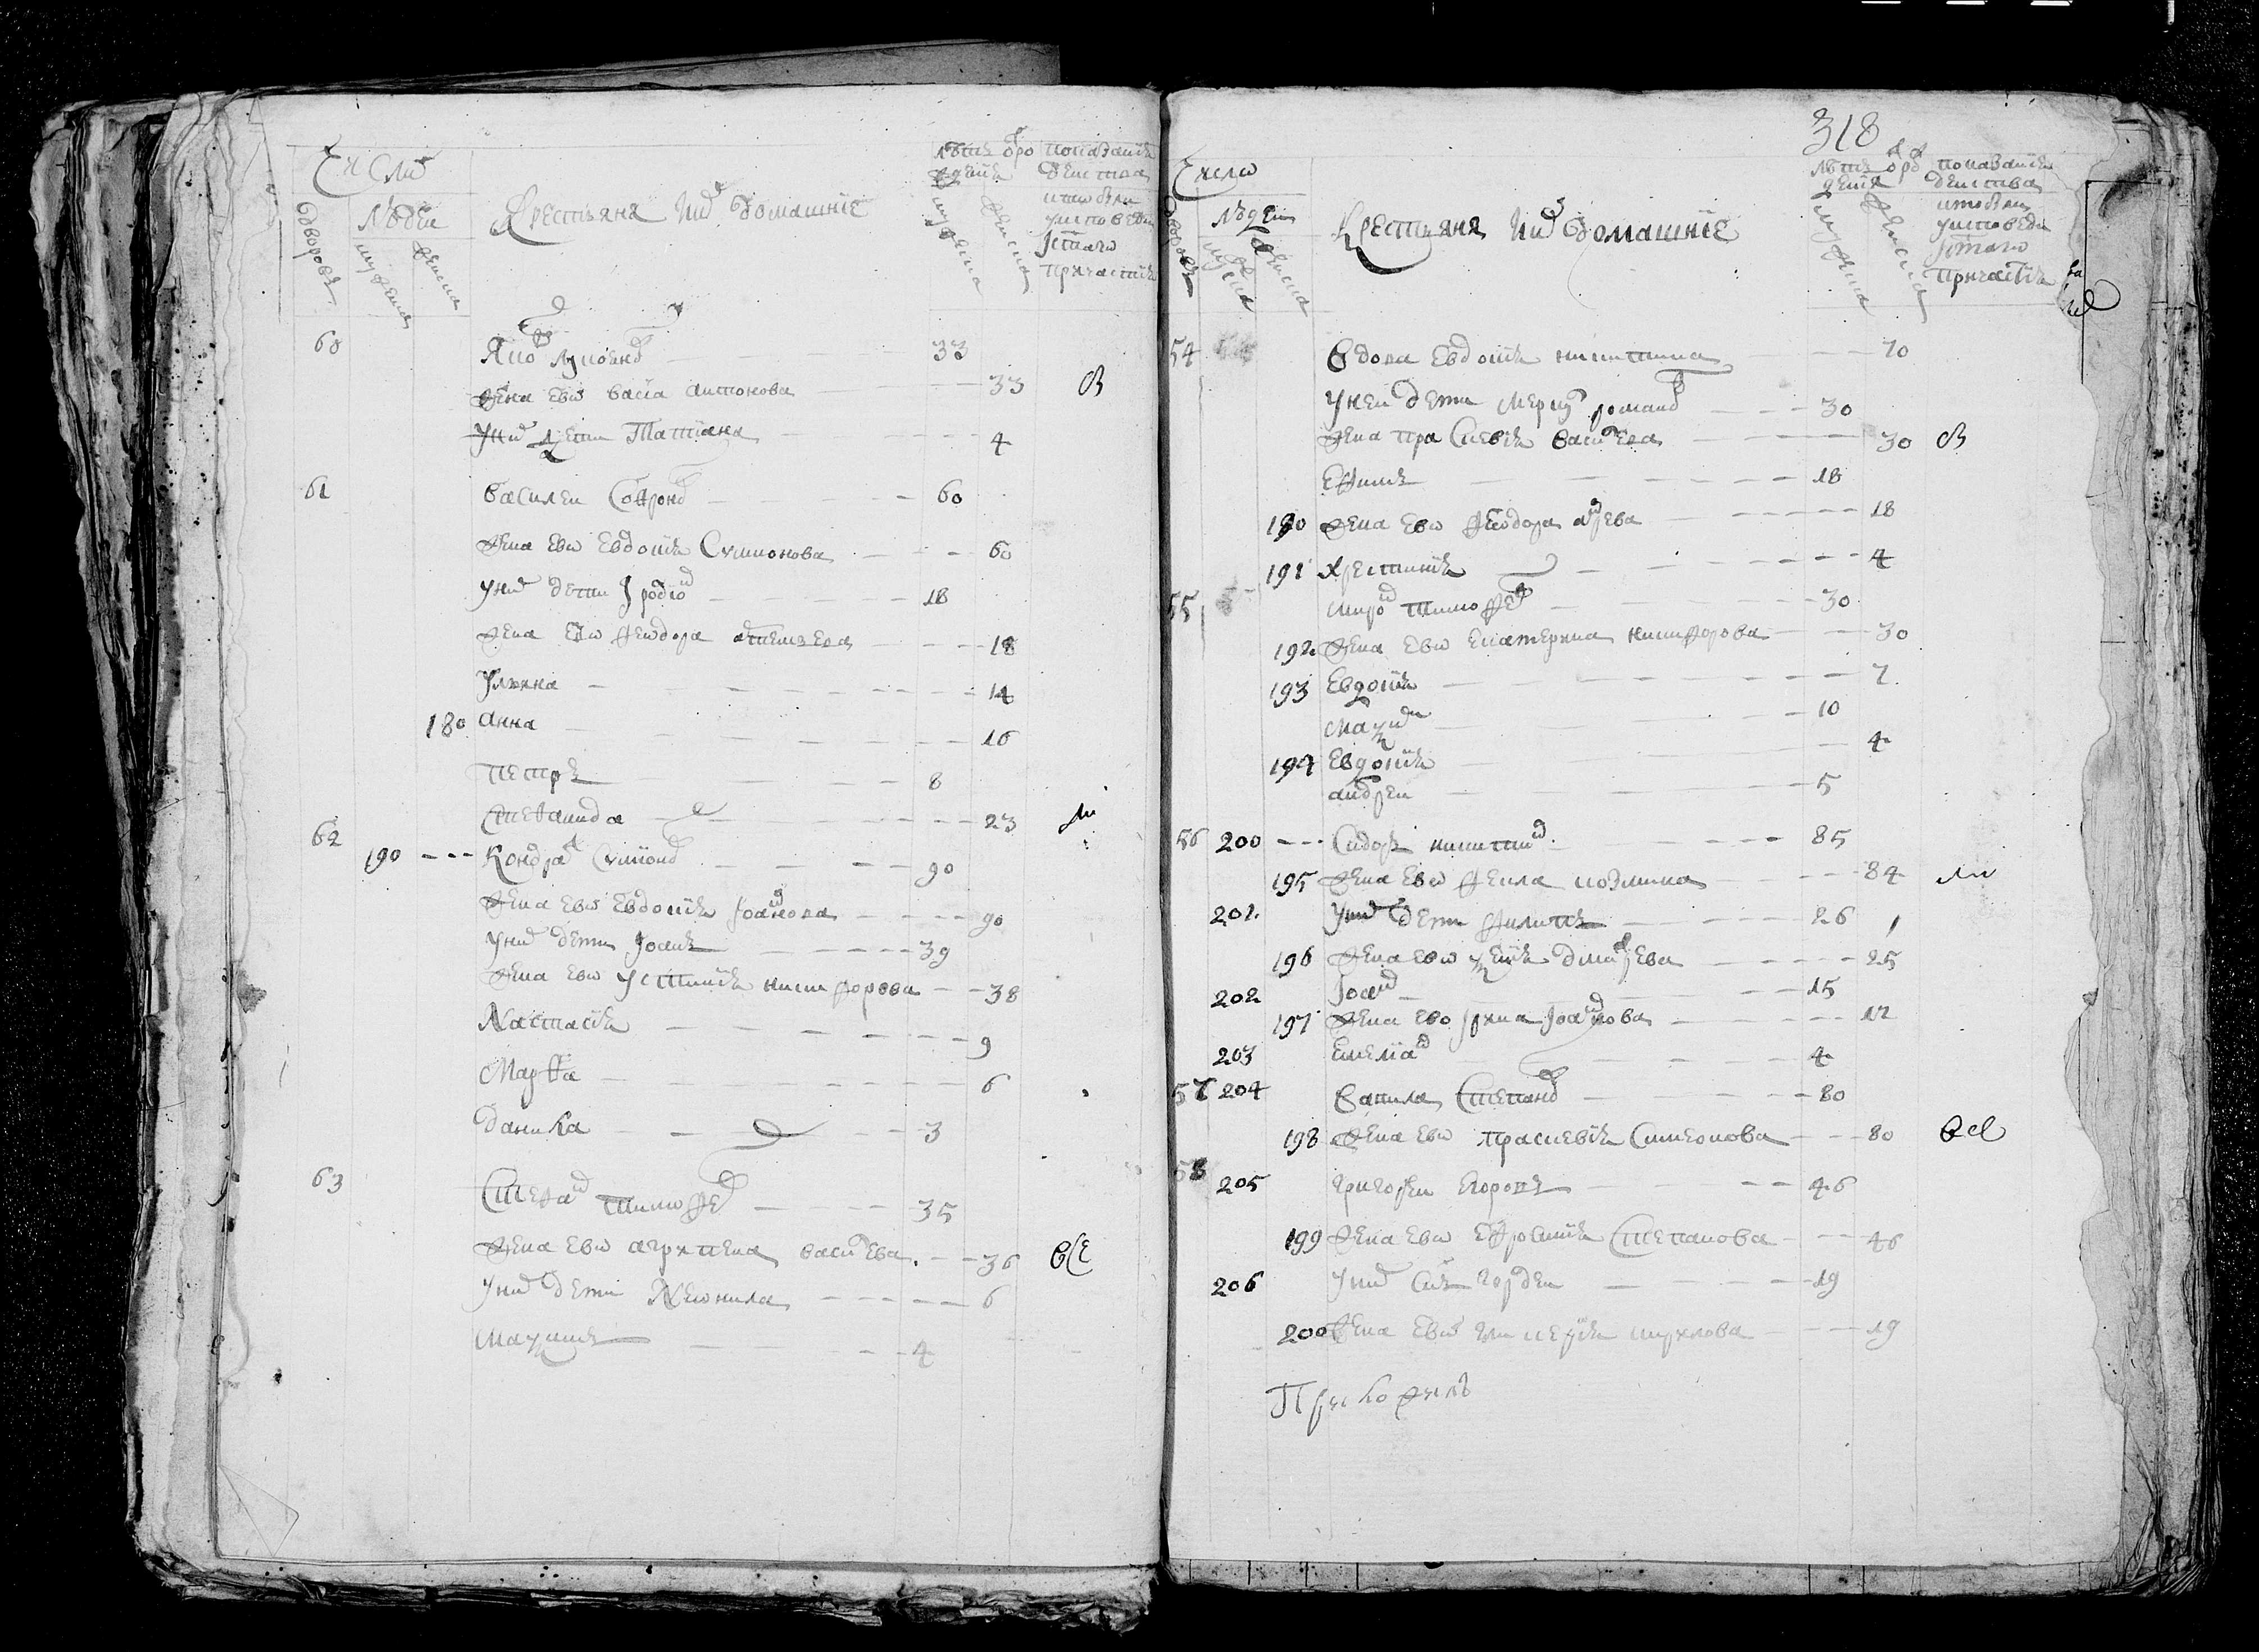 Число
Людеи
Дворовъ
мужеска
женска
Крестьяня ихъ домашние
лѣтъ от рождения
мужеска
женска
показание действа
кто был
у исповеди
и святаго
причастия
60 Яков Лукоянов 33
Жена ево Васса Антонова 33
У них дети Татияна 4
61 Василеи Софронов 60
Жена ево Евдокия Симионова 60
У них дети Иродион 18
Жена ево Феодора Алексеева 18
Улияна 14
180 Анна 16
Петръ 8
Степанида 23
62 190 Кондрат Симионов 90
Жена ево Евдокия Иоаннова 90
У них дети Иоаннъ 39
Жена ево Устиния Никифорова 38
Настасия 9
Марфа 6
Данила 3
63 Стефан Тимофеев 35
Жена ево Агрипена Василева 36 все
У них дети Неонила 6
Максимъ 4
318
Число
Людеи
Дворовъ
мужеска
женска
Крестьяня их домашние
лѣтъ от рождения
мужеска
женска
показание
действа
кто были
у исповеди
и святаго
причастия
54 Вдова Евдокия Никитина 70
У неи дети Меркул Романов 30
Жена Прасковия Василева 30
Ефимъ 18
190 Жена ево Феодора Андреева 18
191 Христиния 4
55 Мирон Тимофеев 30
192 Жена ево Екатерина Никифорова 30
193 Евдокия 7
Максим 10
194 Евдокия 4
Андреи 5
56 200 Сидоръ Никитин 85
195 Жена ево Фекла Козмина 84
201 У них дети Филипъ 26
196 Жена ево Ксения Дмитреева 25
202 Иоанн 15
197 Жена ево Ирина Иоаннова 17
203 Емелиан 4
57 204 Вавила Степанов 80
198 Жена ево Прасковия Симеонова 80 все
58 205 Григореи Егоровъ 46
199 Жена ево Ефросиния Степанова 46
206 У них сынъ Гордеи 19
200 Жена ево Гликерия 19